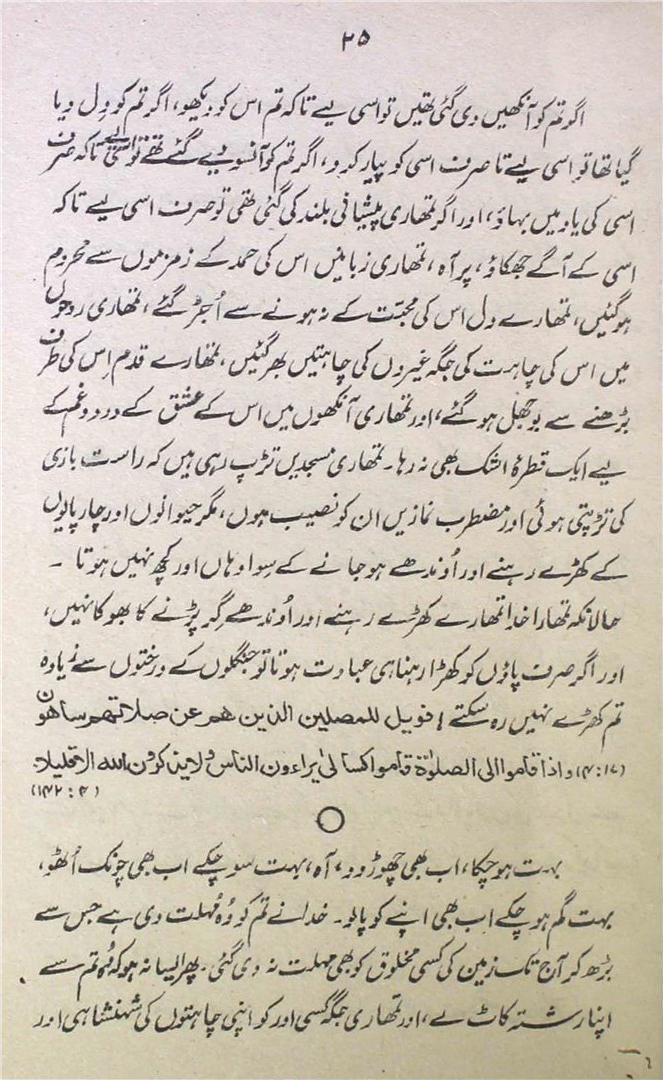 ۲۵
اگر تم کو آنکھیں دی گئی تھیں تو اسی لیے تاکہ تم اس کو دیکھو، اگر تم کو دل دیا
گیا تھا تو اسی لیے تا صرف اسی کو پیار کرو، اگر تم کو آنسو دیے گئے تھے تو اسی لیے تاکہ صرف
اسی کی یاد میں بہاؤ، اور اگر تمھاری پیشانی بلند کی گئی تھی تو صرف اسی لیے تاکہ
اسی کے آگے جھکاؤ، پر آہ، تمھاری زبانیں اس کی حمد کے زمزموں سے محروم
ہو گئیں، تمھارے دل اس کی محبّت کے نہ ہونے سے اُجڑ گئے، تمھاری روحوں
میں اس کی چاہت کی جگہ غیروں کی چاہتیں بھر گئیں، تمھارے قدم اِس کی طرف
بڑھنے سے بوجھل ہو گئے، اور تمھاری آنکھوں میں اس کے عشق کے درد و غم کے
لیے ایک قطرۂ اشک بھی نہ رہا۔ تمھاری مسجدیں تڑپ رہی ہیں کہ راست بازی
کی تڑپتی ہوئی اور مضطرب نمازیں ان کو نصیب ہوں، مگر حیوانوں اور چار پایوں
کے کھڑے رہنے اور اُوندھے ہو جانے کے سوا وہاں اور کچھ نہیں ہوتا ۔
حالانکہ تمھارا خدا تمھارے کھڑے رہنے اور اُوندھے گر پڑنے کا بھوکا نہیں،
اور اگر صرف پاؤں کو کھڑا رہنا ہی عبادت ہوتا تو جنگلوں کے درختوں سے زیادہ
تم کھڑے نہیں رہ سکتے! فویل للمصلین الذین ھم عن صلاتھم ساھون
(۱۷:۴) و اذا قاموا الی الصلوٰۃ قاموا کسالیٰ یراءون الناس ولا یذکرون الله الا قلیلا۔
(۴:۱۴۲)
بہت ہو چکا، اب بھی چھوڑ دو، آہ، بہت سو چکے اب بھی چونک اُٹھو،
بہت گم ہو چکے اب بھی اپنے کو پالو۔ خدا نے تم کو وُہ مُہلت دی ہے جس سے
بڑھ کر آج تک زمین کی کسی مخلوق کو بھی مہلت نہ دی گئی۔ پھر ایسا نہ ہو کہ وُہ تم سے
اپنا رشتہ کاٹ لے، اور تمھاری جگہ کسی اور کو اپنی چاہتوں کی شہنشاہی اور